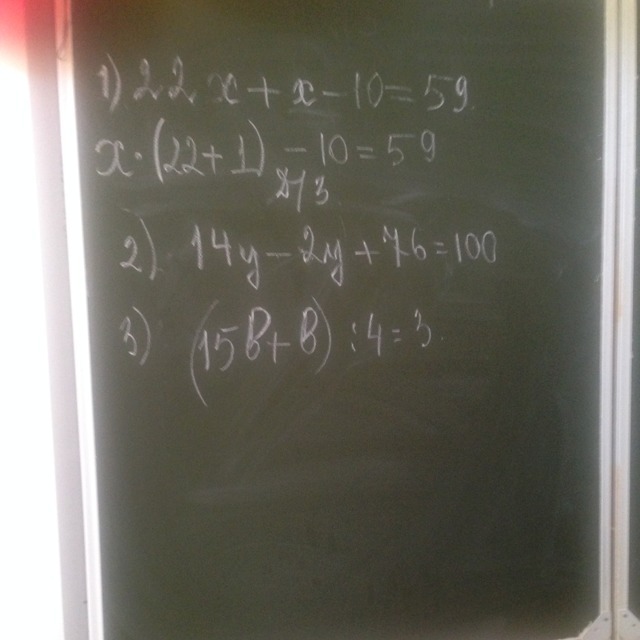 1) 22x + x - 10 = 59
x · (22 + 1) - 10 = 59
2) 14y - 2y + 76 = 100
3) (15в + в) : 4 = 3.